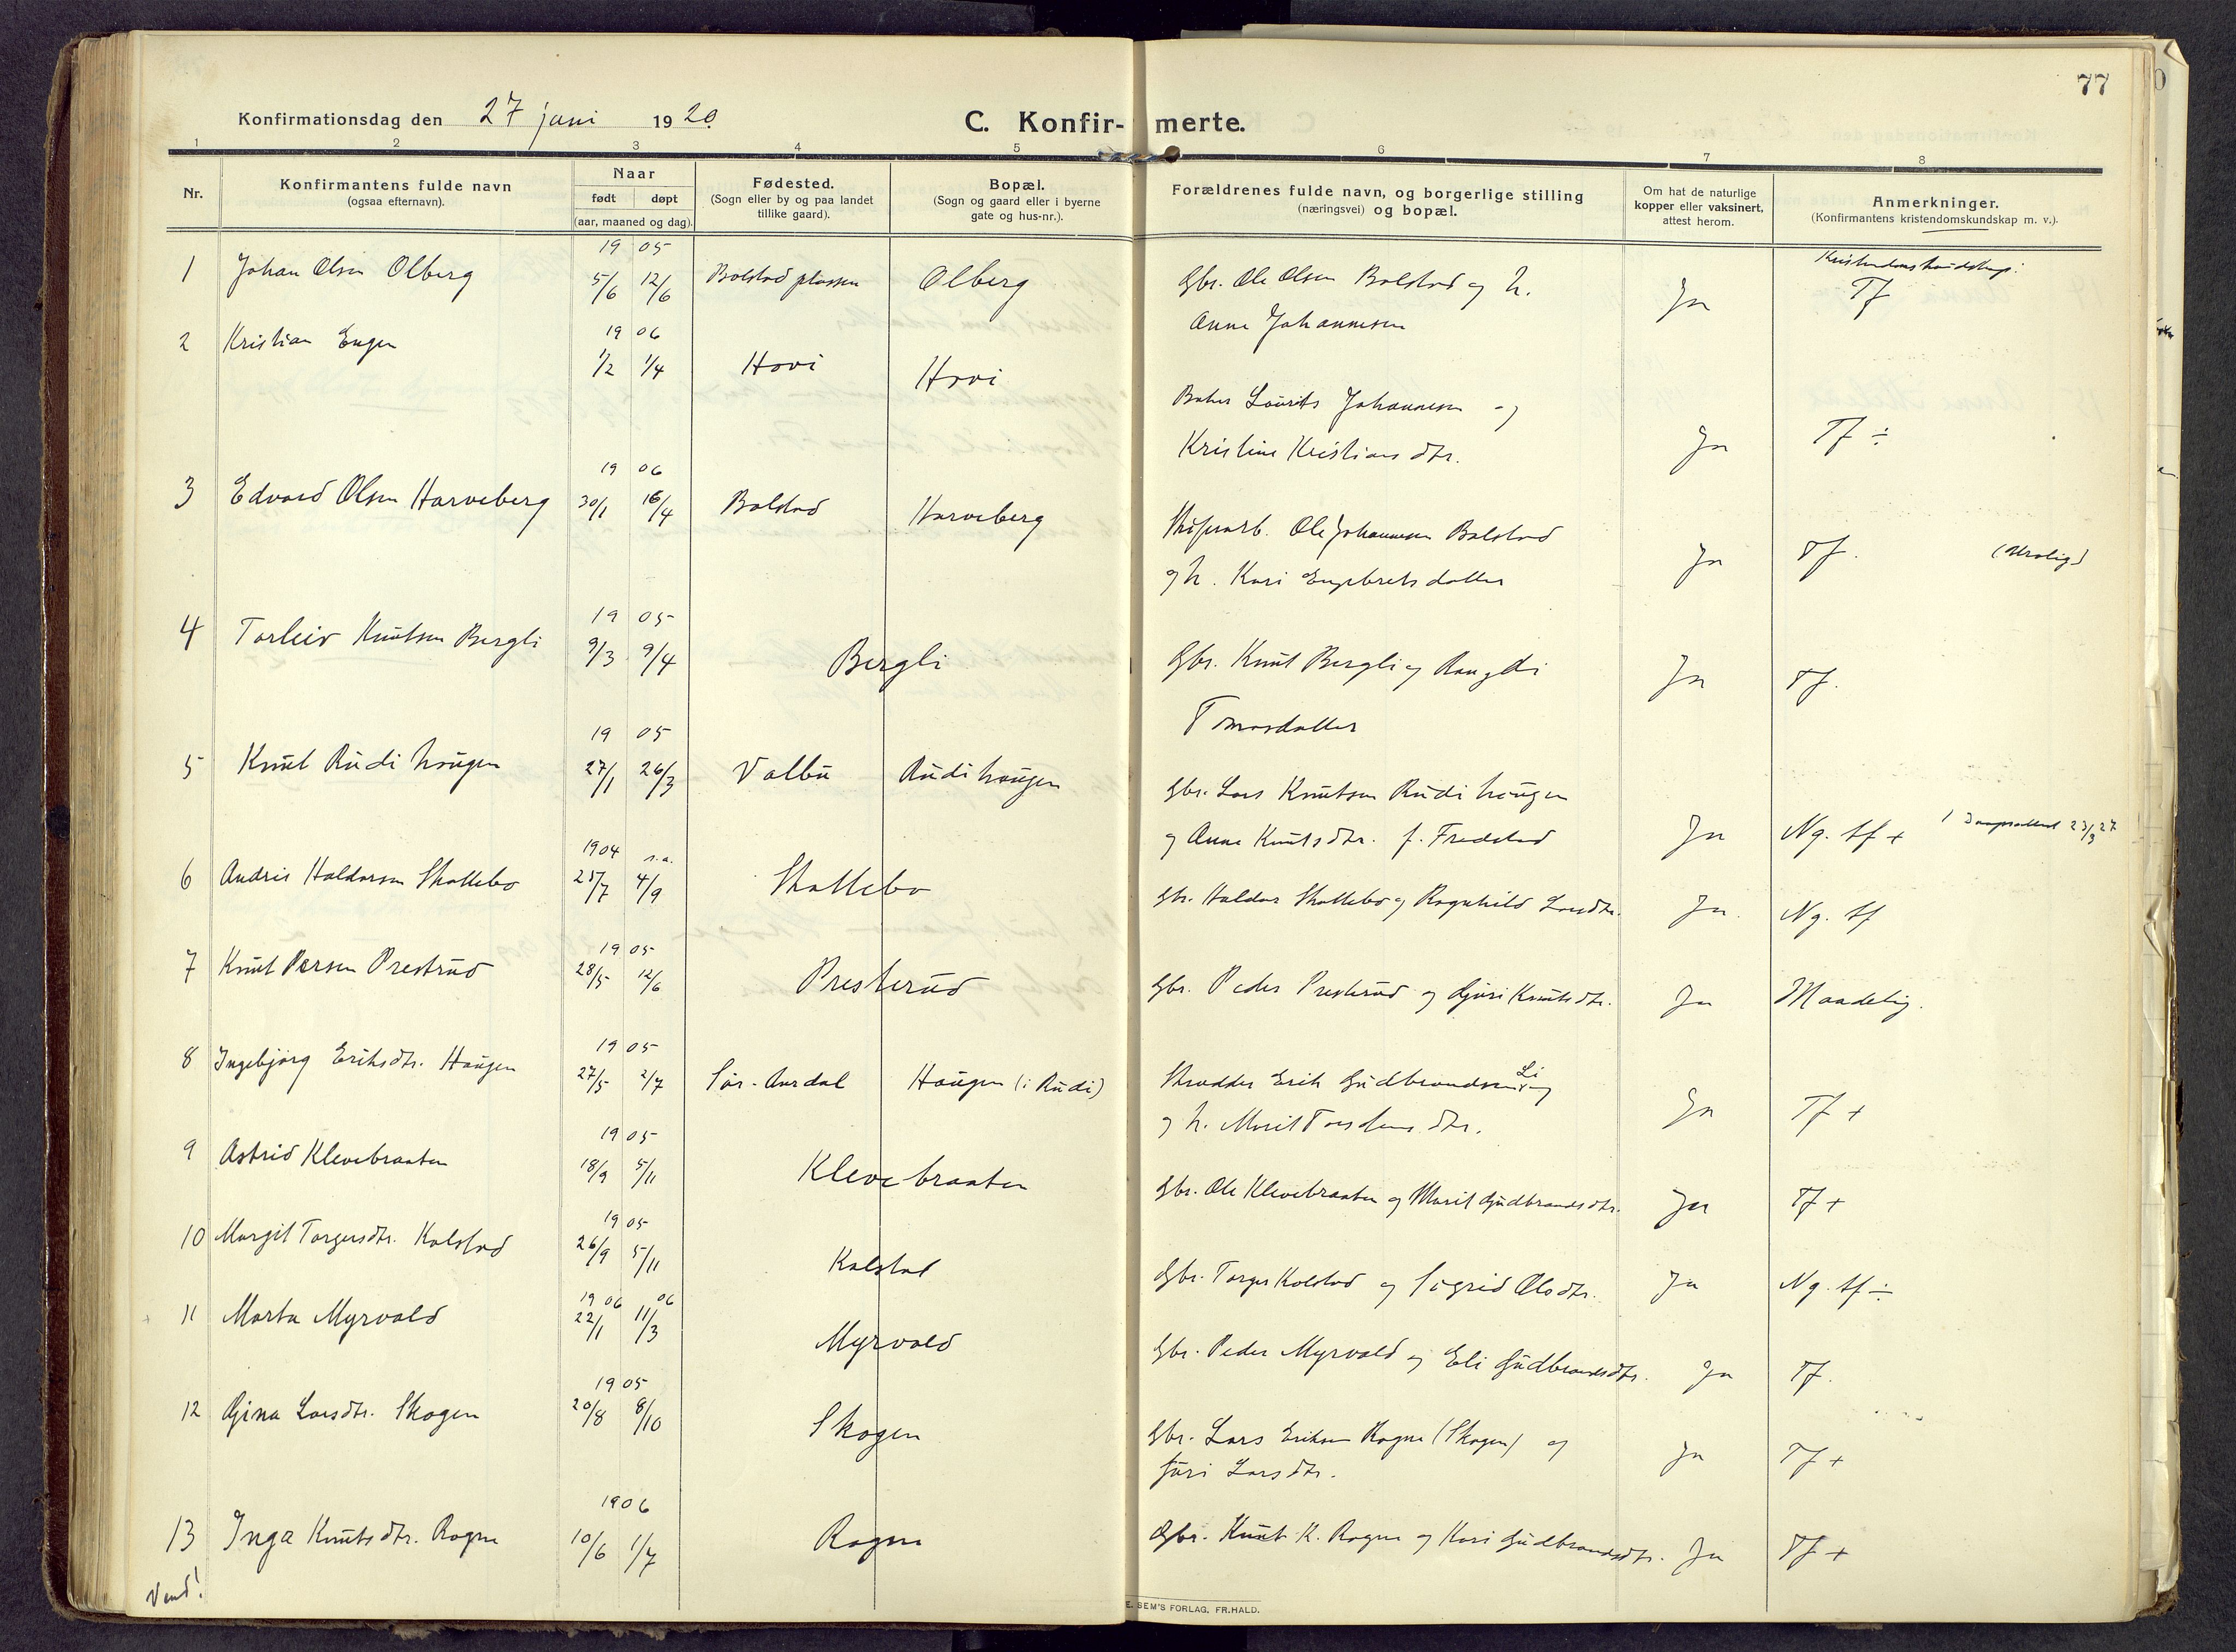 77
Konfirmationsdag den 27 juni 1920
C. Konfir- merte.
1 2 3 4 5 6 7 8
Nr.
Konfirmantens fulde navn
(ogsaa efternavn).
Naar
født døpt
(aar, maaned og dag).
Fødested.
(Sogn eller by og paa landet
tillike gaard).
Bopæl.
(Sogn og gaard eller i byerne
gate og hus-nr.).
Forældrenes fulde navn, og borgerlige stilling
(næringsvei) og bopæl.
Om hat de naturlige
kopper eller vaksinert,
attest herom.
Anmerkninger.
(Konfirmantens kristendomskundskap m. v.).
19 05 Kristendomskundskap:
1 Johan Olsen Olberg 5/6 12/6 Bolstad plassen Olberg Gbr. Ole Olsen Bolstad og h. Ja Tf
Anne Johannesen
19 06
2 Kristian Engen 1/2 1/4 Hovi Hovi
Laurits Johannesen og
Kristine Kristians dtr. Ja Tf ÷
19 06
3 Edvard Olsen Harveberg 30/1 16/4 Bolstad Harveberg
Ole Johannesen Bolstad
og h. Kari Engebrets datter Ja Tf. (Urolig)
19 05
4 Torleiv Knutsen Bergli 9/3 9/4 Bergli Gbr. Knut Bergli og Rangdi Ja Tf.
Tomasdatter
19 05
5 Knut Rudi haugen 27/1 26/3 Volbu Rudi haugen Gbr. Lars Knutsen Rudi haugen
og Anne Knutsdtr. f. Fredstad Ja Ng. tf + 23/3 27
1904 s.a.
6 Andris Haldorsen Skattebo 25/7 4/9 Skattebo Gbr. Haldor Skattebo og Ragnhild Larsdtr. Ja. Ng. tf
19 05
7 Knut Persen Prestrud 28/5 12/6 Presterud Gbr. Peder Presterud og Gjøri Knuts dtr. Ja Maadelig.
19 05
8 Ingebjørg Eriksdtr. Haugen 27/5 2/7 Sør-Aurdal Haugen (i Rudi) Skrædder Erik Gudbrandsen Li
og h. Marit Torstens dtr. Ja Tf +
19 05
9 Astrid Klevebraaten 18/9 5/11 Klevebraaten Gbr. Ole Klevebraaten og Marit Gudbrands dtr. Ja Tf +
19 05
10 Margit Torgersdtr. Kolstad 26/9 5/11 Kolstad Gbr. Torger Kolstad og Sigrid Olsdtr. Ja Ng. tf ÷
19 06 06
11 Marta Myrvold 22/1 11/3 Myrvold Gbr. Peder Myrvold og Eli Gudbrandsdtr. Ja Tf.
19 05
12 Gjina Larsdtr. Skogen 20/8 8/10 Skogen Gbr. Lars Eriksen Rogne (Skogen) og Ja Tf +
Larsdtr.
1906
13 Inga Knutsdtr. Rogne 10/6 1/7 Rogne Gbr. Knut K. Rogne og Kari Gudbrandsdtr. Ja Tf +
Vend!
E. SEM'S FORLAG, FR.HALD.